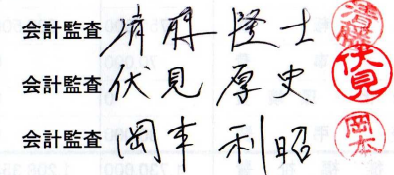 会計監査 斉藤 隆士 斉藤
会計監査 伏見 厚史 伏見
会計監査 岡本 利昭 岡本